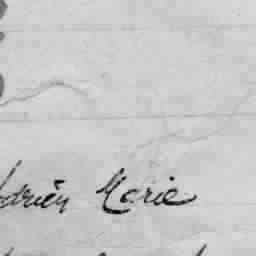 Adrien Marie